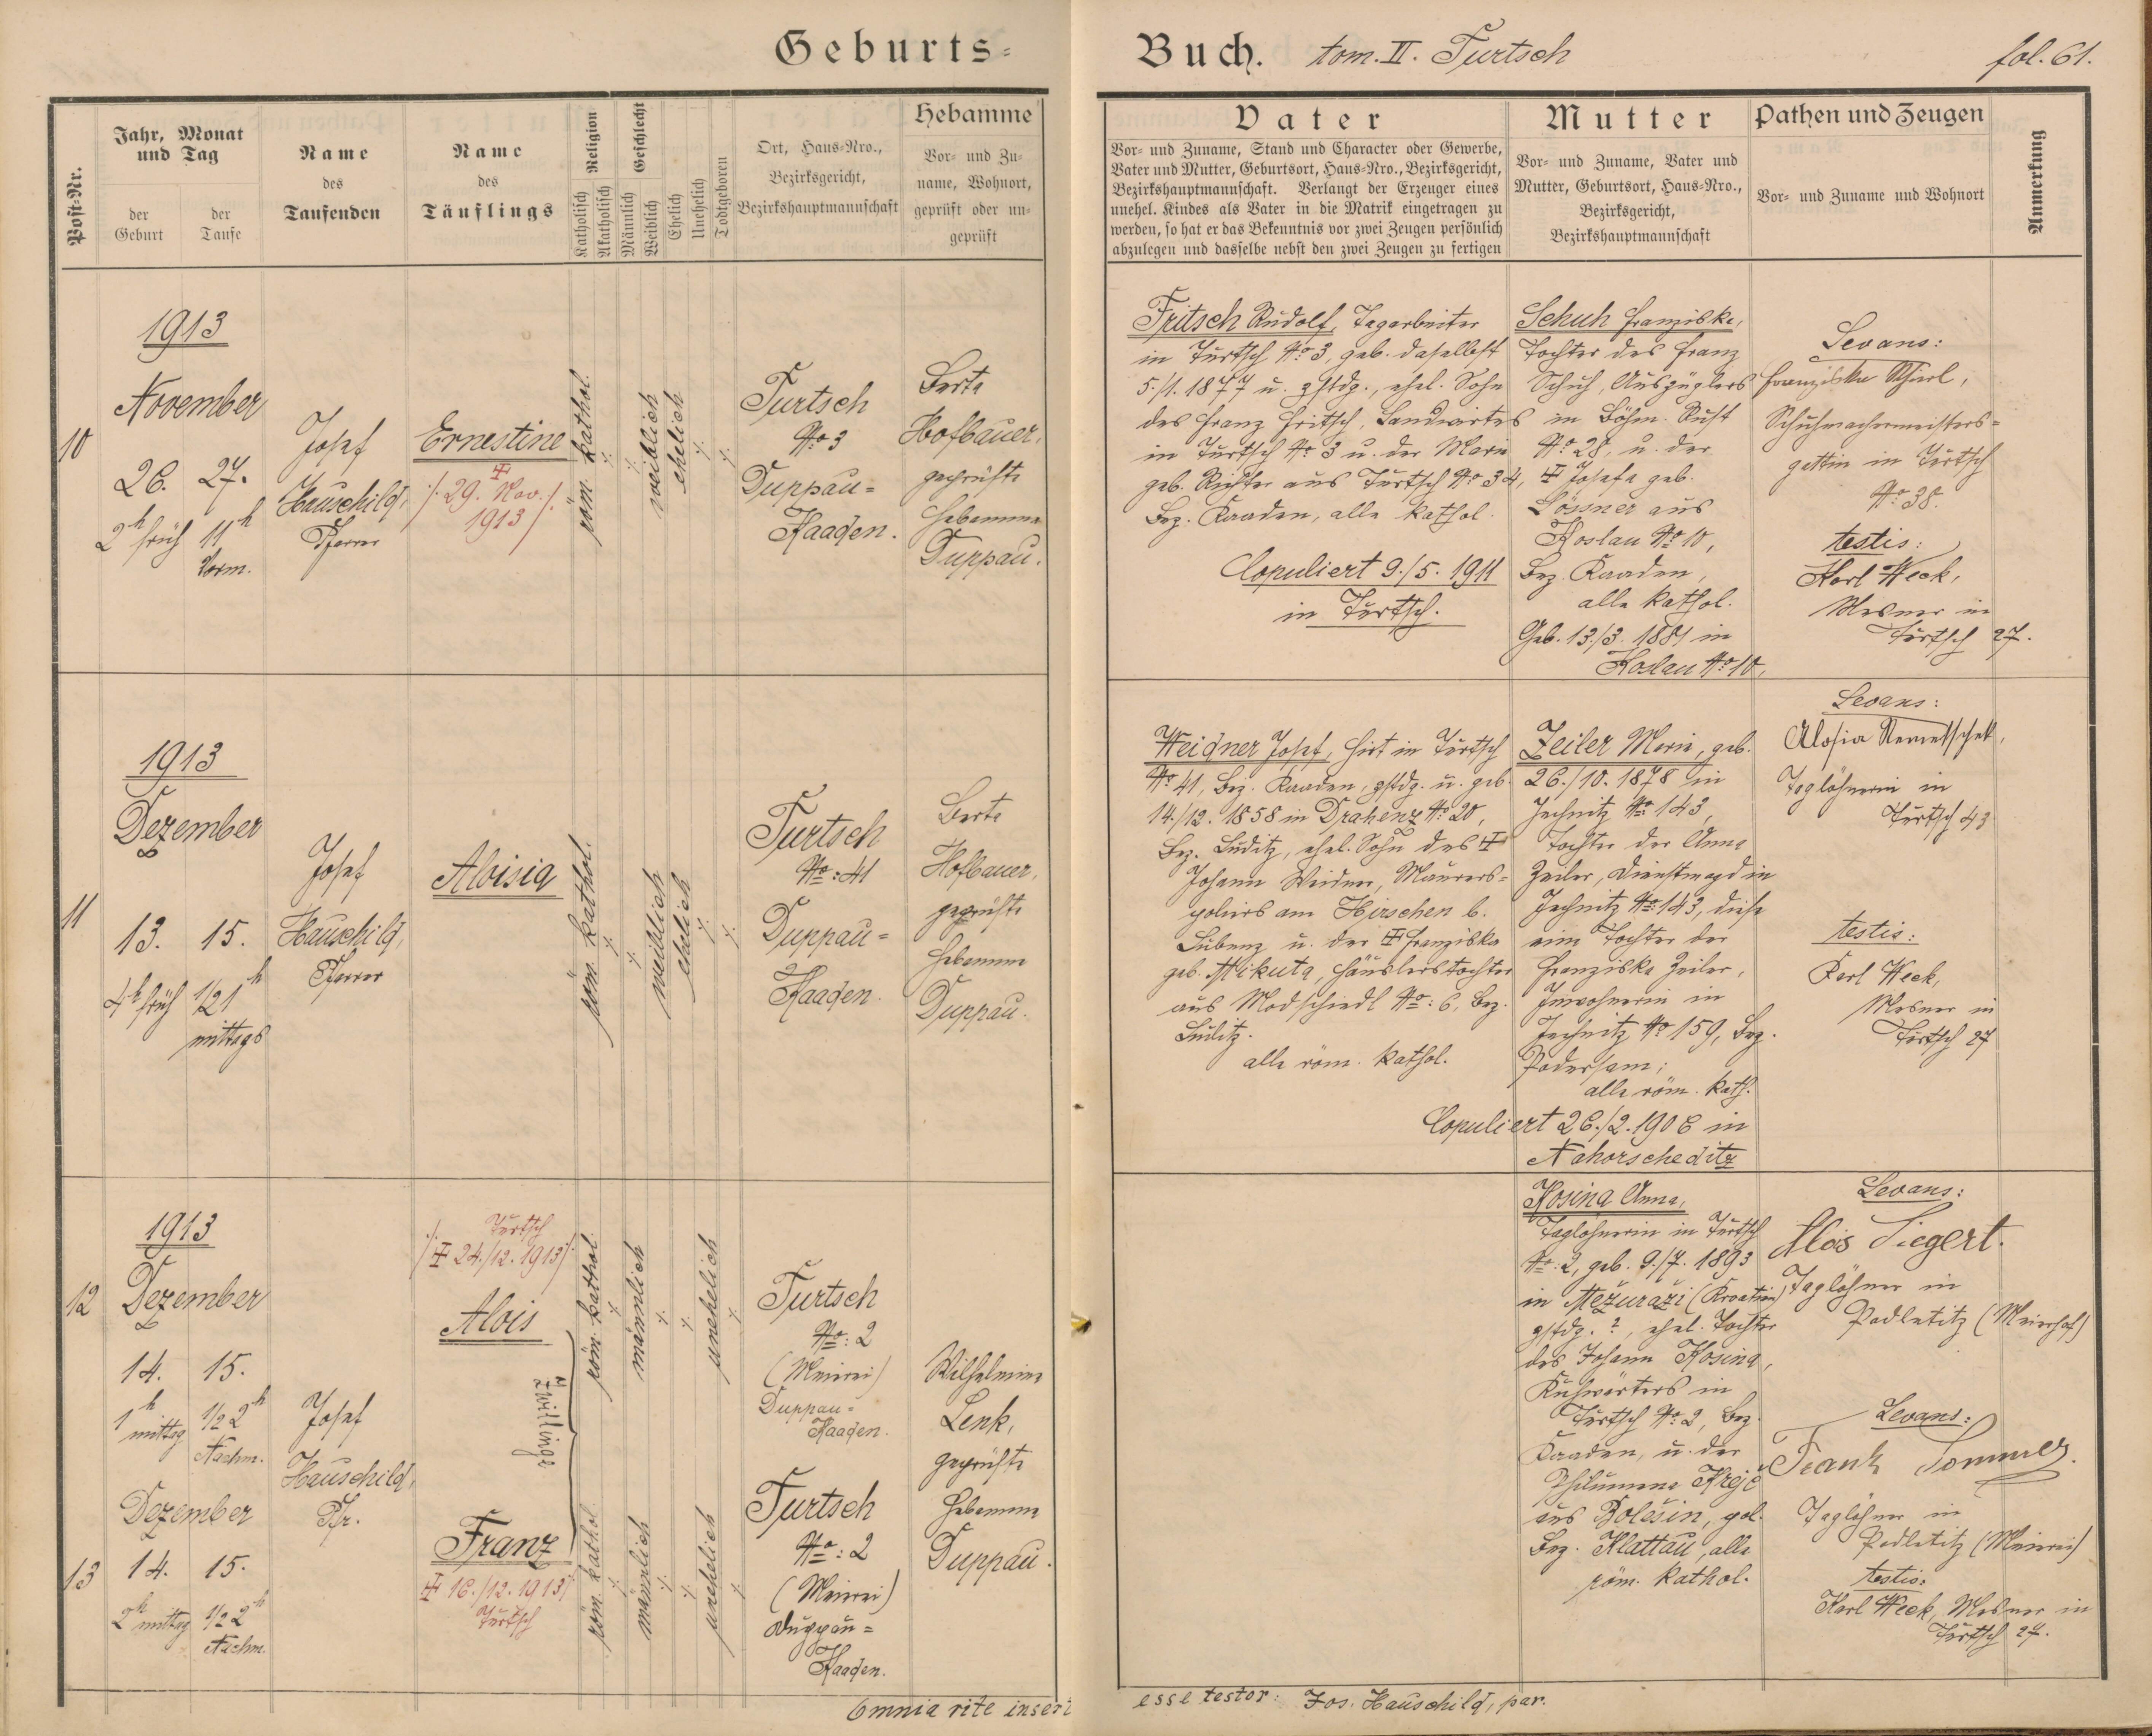 Geburts-
Buch. tom. II. Turtsch
fol. 61.
Post-Nr.
Jahr, Monat
und Tag
der
Geburt
der
Taufe
Name
des
Taufenden
Name
des
Täuflings
Religion
Katholisch
Akatholisch
Geschlecht
Männlich
Weiblich
Ehelich
Unehelich
Todtgeboren
Ort, Haus-Nro.,
Bezirksgericht,
Bezirkshauptmannschaft
Hebamme
Vor- und Zu-
name, Wohnort,
geprüft oder un-
geprüft
Vater
Vor- und Zuname, Stand und Character oder Gewerbe,
Vater und Mutter, Geburtsort, Haus-Nro., Bezirksgericht,
Bezirkshauptmannschaft. Verlangt der Erzeuger eines
unehel. Kindes als Vater in die Matrik eingetragen zu
werden, so hat er das Bekenntnis vor zwei Zeugen persönlich
abzulegen und dasselbe nebst den zwei Zeugen zu fertigen
Mutter
Vor- und Zuname, Vater und
Mutter, Geburtsort, Haus-Nro.,
Bezirksgericht,
Bezirkshauptmannschaft
Pathen und Zeugen
Vor- und Zuname und Wohnort
Anmerkung
10
1913
November
26. 27.
2h früh 11h
Vorm.
Josef
Hauschild,
Pfarrer
Ernestine
/. 29. Nov. /.
1913
röm. kathol.
weiblich
ehelich
Turtsch
No 3
Duppau-
Kaaden.
Berta
Hofbauer,
geprüfte
Hebamme
Duppau.
Fritsch Rudolf, Tagarbeiter
in Turtsch No 3, geb. daselbst
5./1. 1877 u. zstdg., ehel. Sohn
des Franz Fritsch, Landwirtes
in Turtsch No 3 u. der Maria
geb. Richter aus Turtsch No 34,
Bez. Kaaden, alle kathol.
Copuliert 9./5. 1911
in Turtsch.
Schuh Franziska,
Tochter des Franz
Schuh, Auszüglers
in Böhm. Rust
No 28, u. der
Josefa geb.
Lössner aus
Koslau No 10,
Bez. Kaaden,
alle kathol.
Geb. 13./3. 1881 in
Koslau No 10,
Levans:
Franziska
Schuhmachermeisters-
gattin in Turtsch
No 38.
testis:
Karl Weck,
Mesner in
Turtsch 27.
11
1913
Dezember
13. 15.
4h früh 1/2 1h
mittags
Josef
Hauschild,
Pfarrer
Aloisia
röm. kathol.
weiblich
ehelich
Turtsch
No: 41
Duppau-
Kaaden.
Berta
Hofbauer,
geprüfte
Hebamme
Duppau.
Weidner Josef, Hirt in Turtsch
No 41, Bez. Kaaden, zstdg. u. geb.
14./12. 1858 in Drahenz No 20,
Bez. Luditz, ehel. Sohn des
Johann Weidner, Maurers-
poliers am Hirschen b.
Lubenz u. der Franziska
geb. Mikuta, Häuslerstochter
aus Modschiedl No: 6, Bez.
Luditz.
alle röm. kathol.
Zeiler Maria, geb.
26./10. 1878 in
Jechnitz No 143,
Tochter der Anna
Zeiler, Dienstmagd in
Jechnitz No 143, diese
eine Tochter der
Franziska Zeiler,
Inwohnerin in
Jechnitz No 159, Bez.
Podersam;
alle röm. kath.
Copuliert 26./2. 1906 in
Nahorscheditz
Levans:
Alosia Nemetschek,
Taglöhnerin in
Turtsch 43
testis:
Karl Weck,
Mesner in
Turtsch 27
12
1913
Dezember
14. 15.
1h mittag 1/2 2h
Nachm.
Turtsch
24./12. 1913
Alois
Zwillinge
röm. kathol.
männlich
unehelich
Turtsch
No: 2
(Meierei)
Duppau-
Kaaden.
Josef
Hauschild,
Pfr.
Wilhelmine
Lenk,
geprüfte
Hebamme
Duppau.
Kosina Anna,
Taglöhnerin in Turtsch
No. 2, geb. 9./7. 1893
in Mežurazi (Kroatien)
zstdg. ?, ehel. Tochter
des Johann Kosina,
Kuhwärters in
Turtsch No: 2, Bez.
Kaaden, u. der
Philumena Krejč
aus Bolešin, pol.
Bez. Klattau, alle
röm. kathol.
Levans:
Alois Siegert.
Taglöhner in
Podletitz (Meierhof)
13
Dezember
14. 15.
2h mittag 1/2 2h
Nachm.
Franz
16./12. 1913
Turtsch
röm. kathol.
männlich
unehelich
Turtsch
No: 2
(Meierei)
Duppau-
Kaaden.
Levans:
Frank Sommer.
Taglöhner in
Podletitz (Meierei)
testis:
Karl Weck, Mesner in
Turtsch 27.
Omnia rite inserta
esse testor: Jos. Hauschild, par.